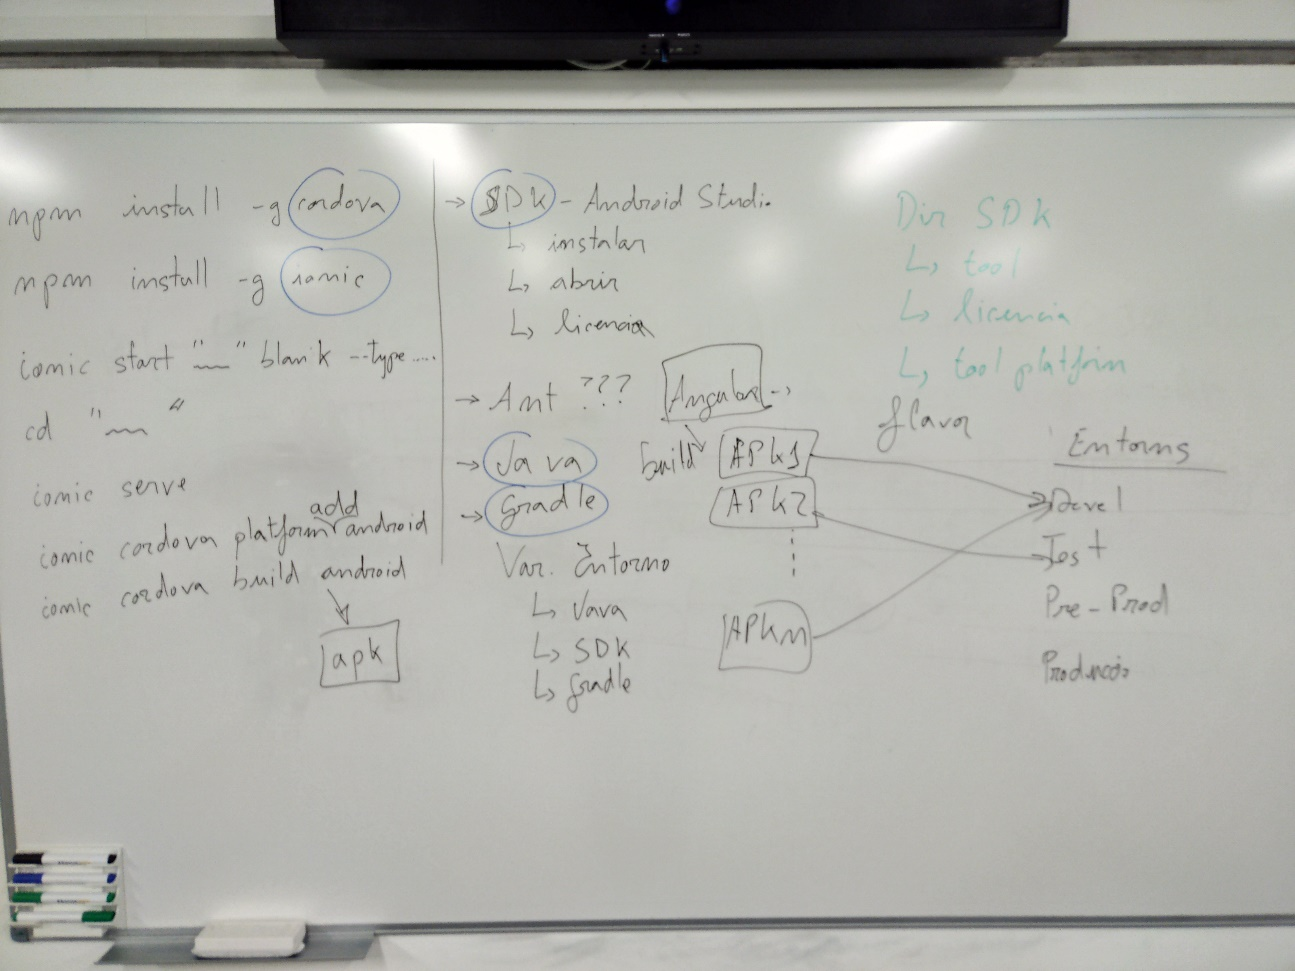 npm install -g cordova
npm install -g ionic
ionic start "__" blank --type ....
cd "__"
ionic serve
ionic cordova platform add android
ionic cordova build android
apk
→ SDK - Android Studio
↳ instalar
↳ abrir
↳ licencia
→ Ant ???
→ Java
→ Gradle
Var. Entorno
↳ Java
↳ SDK
↳ Gradle
Angular -->
build
APK1
APK2
APKn
Dir SDK
↳ tool
↳ licencia
↳ tool platform
flavor
Entorns
Devel
Test
Pre-Prod